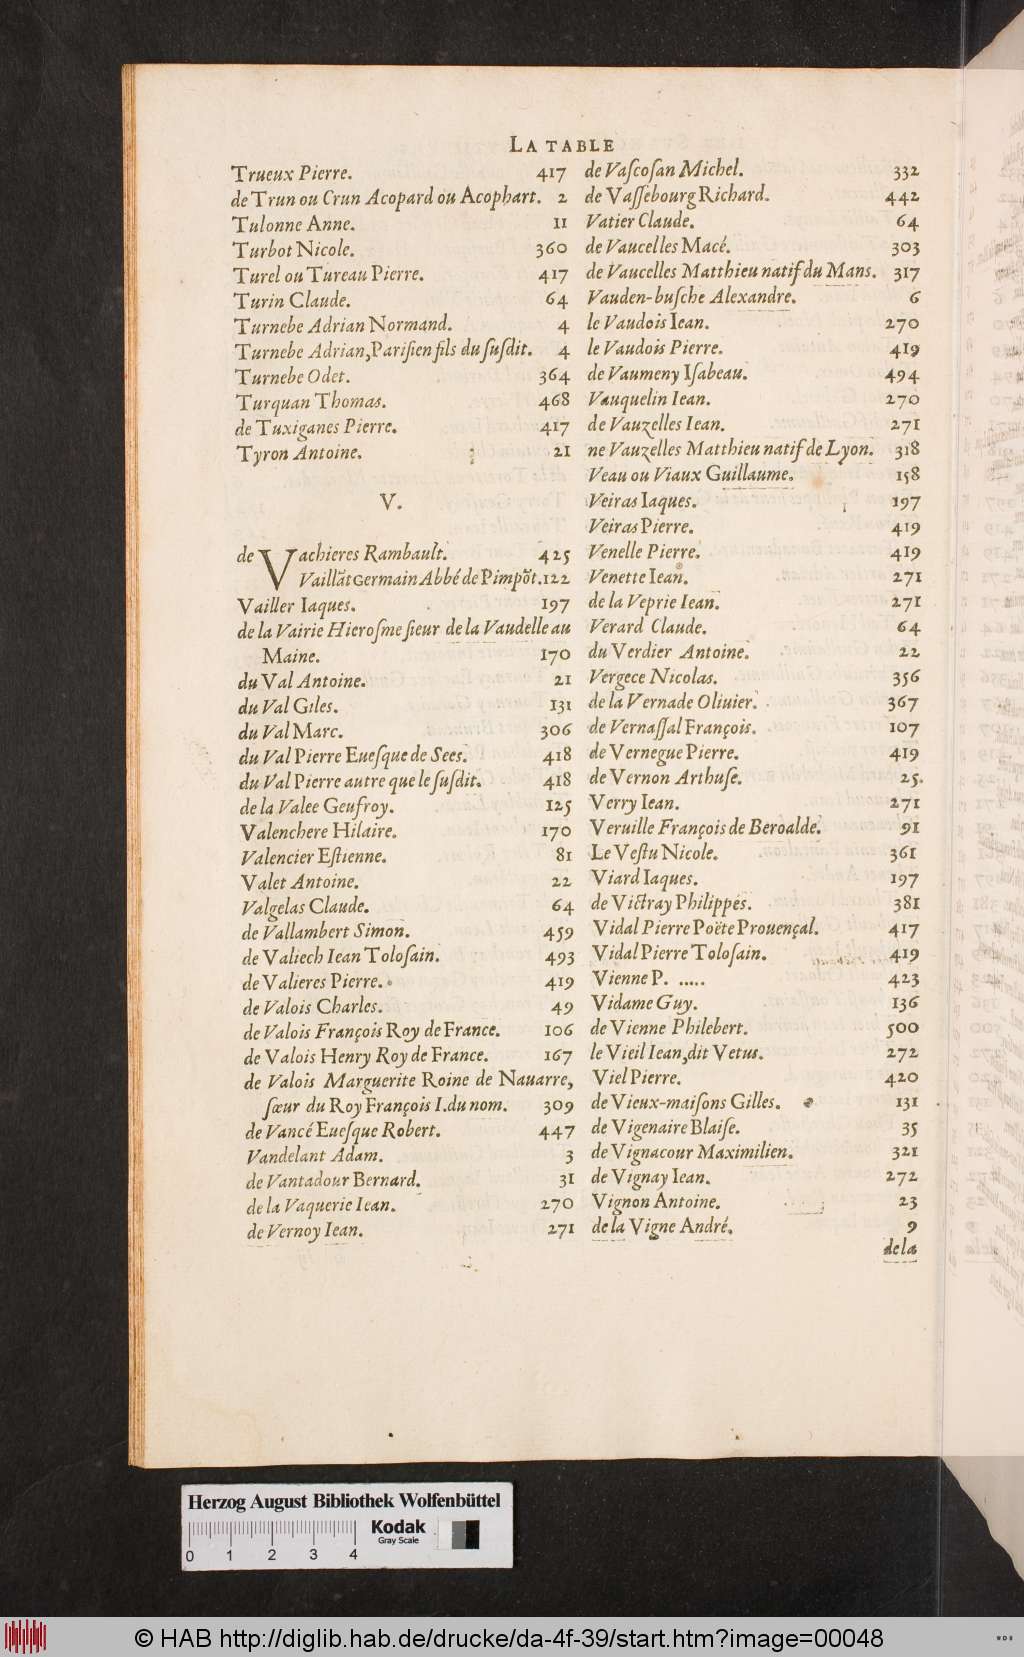 LA TABLE
Trueux Pierre. 417
de Trun ou Crun Acopard ou Acophart. 2
Tulonne Anne. 11
Turbot Nicole. 360
Turel ou Tureau Pierre. 417
Turin Claude. 64
Turnebe Adrian Normand. 4
Turnebe Adrian, Pariſien fils du ſuſdit. 4
Turnebe Odet. 364
Turquan Thomas. 468
de Tuxiganes Pierre. 417
Tyron Antoine. 21
V.
de Vachieres Rambault. 425
Vaillãt Germain Abbé de Pimpõt. 122
Vailler Iaques. 197
de la Vairie Hieroſme ſieur de la Vaudelle au
Maine. 170
du Val Antoine. 21
du Val Giles. 131
du Val Marc. 306
du Val Pierre Eueſque de Sees. 418
du Val Pierre autre que le ſuſdit. 418
de la Valee Geufroy. 125
Valenchere Hilaire. 170
Valencier Eſtienne. 81
Valet Antoine. 22
Valgelas Claude. 64
de Vallambert Simon. 459
de Valiech Iean Toloſain. 493
de Valieres Pierre. 419
de Valois Charles. 49
de Valois François Roy de France. 106
de Valois Henry Roy de France. 167
de Valois Marguerite Roine de Nauarre,
ſœur du Roy François I. du nom. 309
de Vancé Eueſque Robert. 447
Vandelant Adam. 3
de Vantadour Bernard. 31
de la Vaquerie Iean. 270
de Vernoy Iean. 271
de Vaſcoſan Michel. 332
de Vaſſebourg Richard. 442
Vatier Claude. 64
de Vaucelles Macé. 303
de Vaucelles Matthieu natif du Mans. 317
Vauden-buſche Alexandre. 6
le Vaudois Iean. 270
le Vaudois Pierre. 419
de Vaumeny Iſabeau. 494
Vauquelin Iean. 270
de Vauzelles Iean. 271
ne Vauzelles Matthieu natif de Lyon. 318
Veau ou Viaux Guillaume. 158
Veiras Iaques. 197
Veiras Pierre. 419
Venelle Pierre. 419
Venette Iean. 271
de la Veprie Iean. 271
Verard Claude. 64
du Verdier Antoine. 22
Vergece Nicolas. 356
de la Vernade Oliuier. 367
de Vernaſſal François. 107
de Vernegue Pierre. 419
de Vernon Arthuſe. 25.
Verry Iean. 271
Veruille François de Beroalde. 91
Le Veſtu Nicole. 361
Viard Iaques. 197
de Victray Philippes. 381
Vidal Pierre Poëte Prouençal. 417
Vidal Pierre Toloſain. 419
Vienne P. ..... 423
Vidame Guy. 136
de Vienne Philebert. 500
le Vieil Iean, dit Vetus. 272
Viel Pierre. 420
de Vieux-maiſons Gilles. 131
de Vigenaire Blaiſe. 35
de Vignacour Maximilien. 321
de Vignay Iean. 272
Vignon Antoine. 23
de la Vigne André. 9
de la
Herzog August Bibliothek Wolfenbüttel
Kodak
Gray Scale
0 1 2 3 4
© HAB http://diglib.hab.de/drucke/da-4f-39/start.htm?image=00048